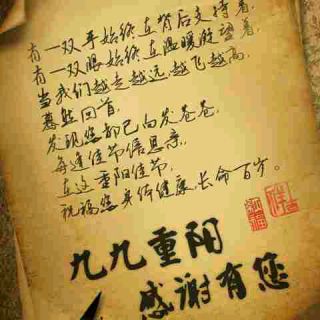 有一双手始终在背后支持着,
有一双眼始终在温暖凝望着,
当我们越走越远,越飞越高,
蓦然回首,
发现您都已白发苍苍,
每逢佳节倍思亲,
在这重阳佳节,
祝福您身体健康,长命百岁。
九九重阳
感谢有您